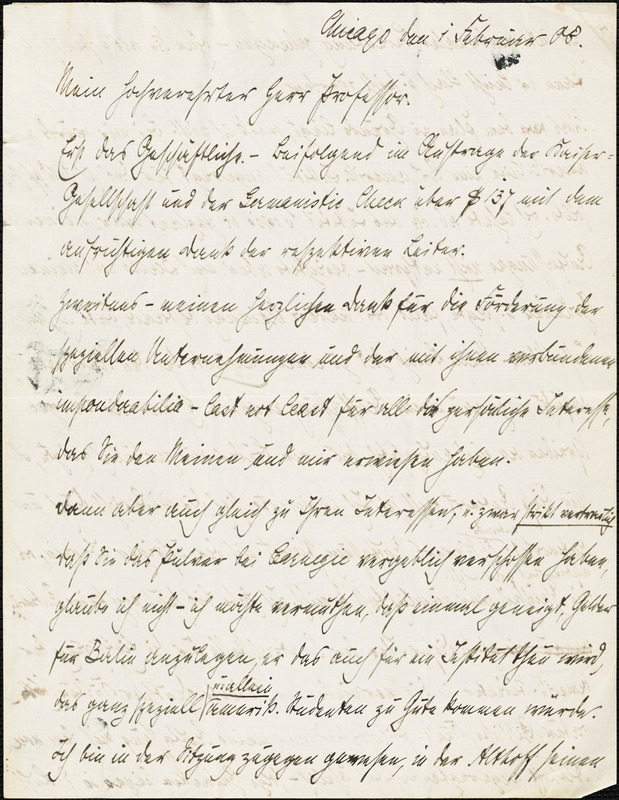 Chicago den 1 Februar 08.
Mein hochverehrter Herr Professor.
Erst das Geschäftliche. – Beifolgend im Auftrage der Kaiser-
Gesellschaft und der Germanistic Check über $ 137 mit dem
aufrichtigen Dank der respektiven Leiter.
Zweitens – meinen herzlichen Dank für die Förderung der
speziellen Unternehmungen und der mit ihnen verbundenen
imponderabilia – last not least für all das persönliche Interesse,
das Sie den Meinen und mir erwiesen haben.
Dann aber auch gleich zu Ihren Interessen, u. zwar strikt vertraulich
daß Sie das Pulver bei Carnegie vergeblich verschossen haben,
glaube ich nicht – ich möchte vermuthen, daß einmal geneigt, Gelder
für Berlin anzulegen, er das auch für ein Institut thun wird,
das ganz speziell u. allein amerik. Studenten zu Gute kommen würde.
Ich bin in der Sitzung zugegen gewesen, in der Althoff seinen